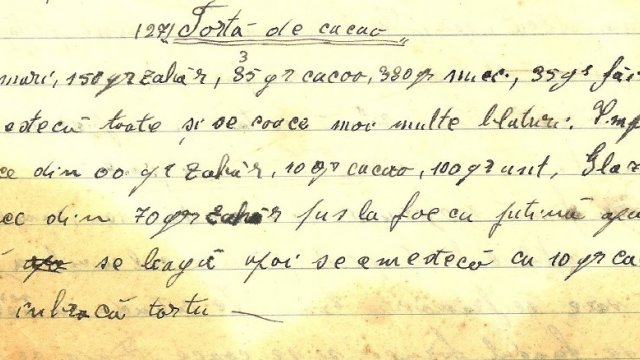 127) Tortă de cacao
mari, 150 gr zahăr, 35 gr cacao, 380 gr nuci, 35 gr făi
mestecă toate și se coace mai multe blaturi. Ump
ce din 00 gr zahăr, 10 gr cacao, 100 gr unt, Glaz
ec din 70 gr zahăr pus la foc cu puțină apă
se leagă apoi se amestecă cu 10 gr cac
imbracă tortu